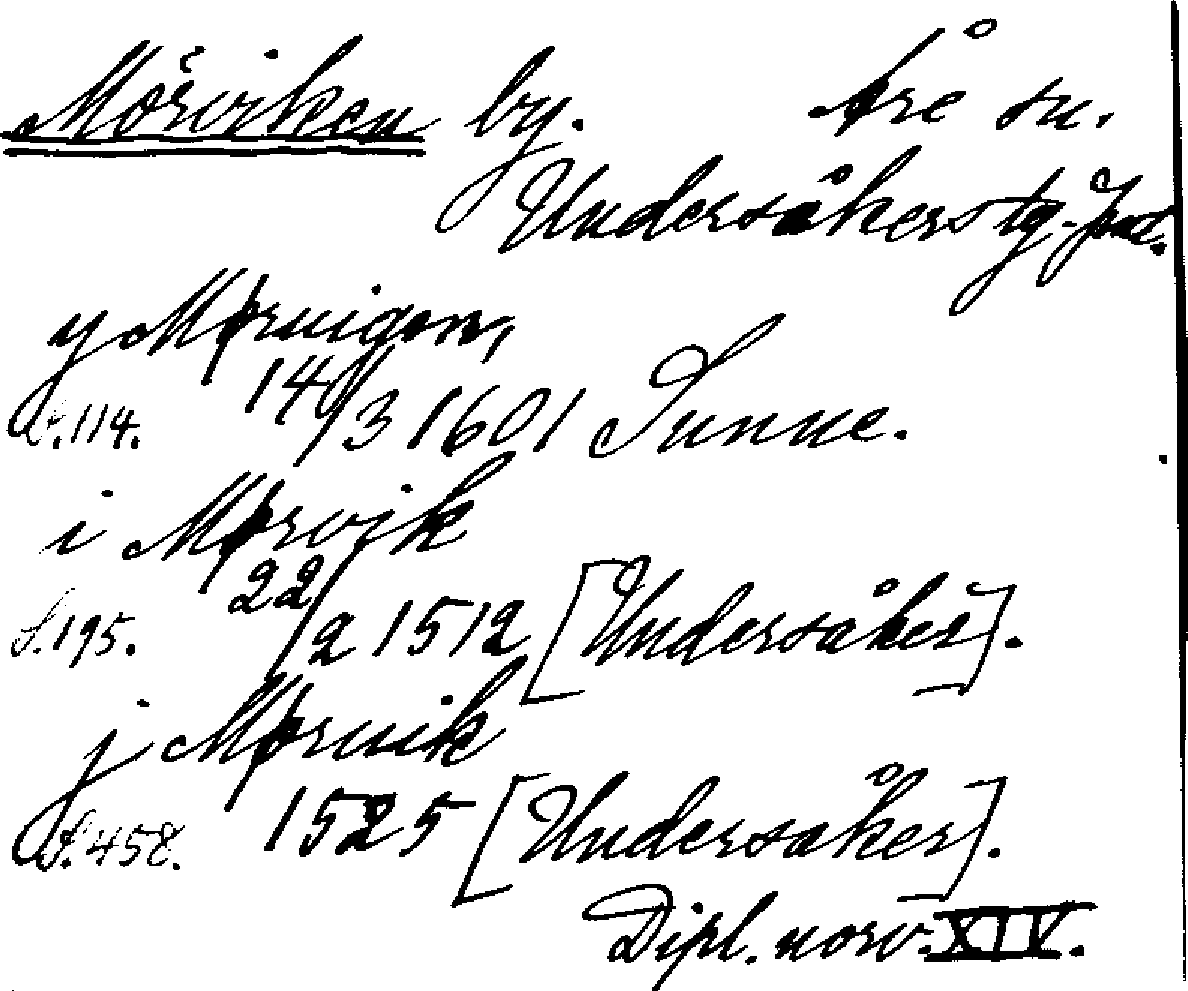 Mörviken by. Åre sn.
Undersåkers tg. Jmtl.
y Møruigenn,
S. 114. 14/3 1601 Sunne.
i Mørvik
S. 195. 22/2 1512 [Undersåker].
j Møruik
S. 458. 1525 [Undersåker].
Dipl. norv. XIV.